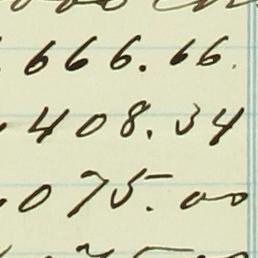 666.66
408.34
075.00